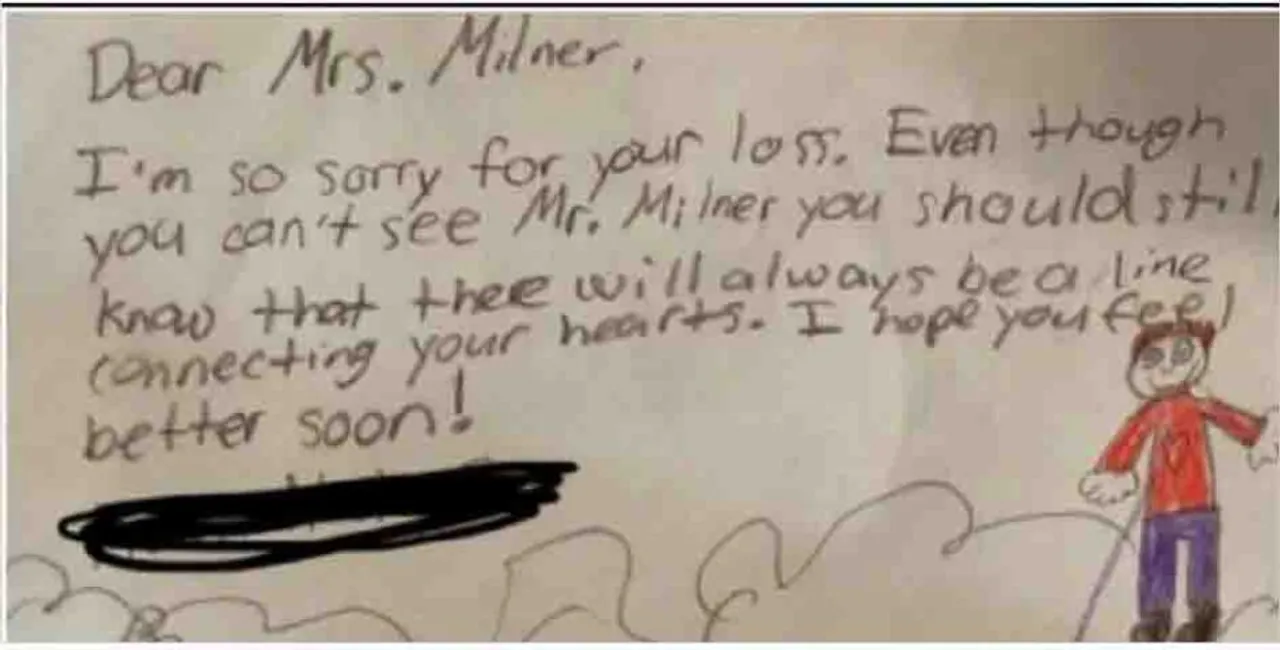 Dear Mrs. Milner,
I'm so sorry for your loss. Even though
you can't see Mr. Milner you should still
know that thee will always be a line
connecting your hearts. I hope you feel
better soon!